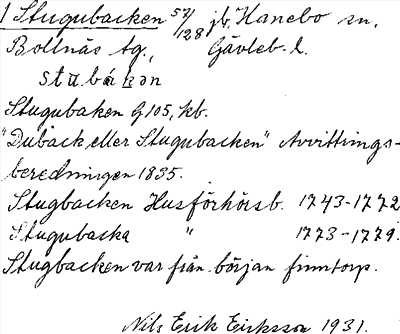 1 Stugubacken 57/128 jb, Hanebo sn,
Bollnäs tg., Gävleb. l.
stubákan
Stugubaken G 105, kb.
"Duback eller Stugubacken" Avvittrings-
beredningen 1835.
Stugbacken Husförhörsb. 1743-1772
Stugubacka " 1773-1779.
Stugbacken var från början finntorp.
Nils Erik Eriksson 1931.